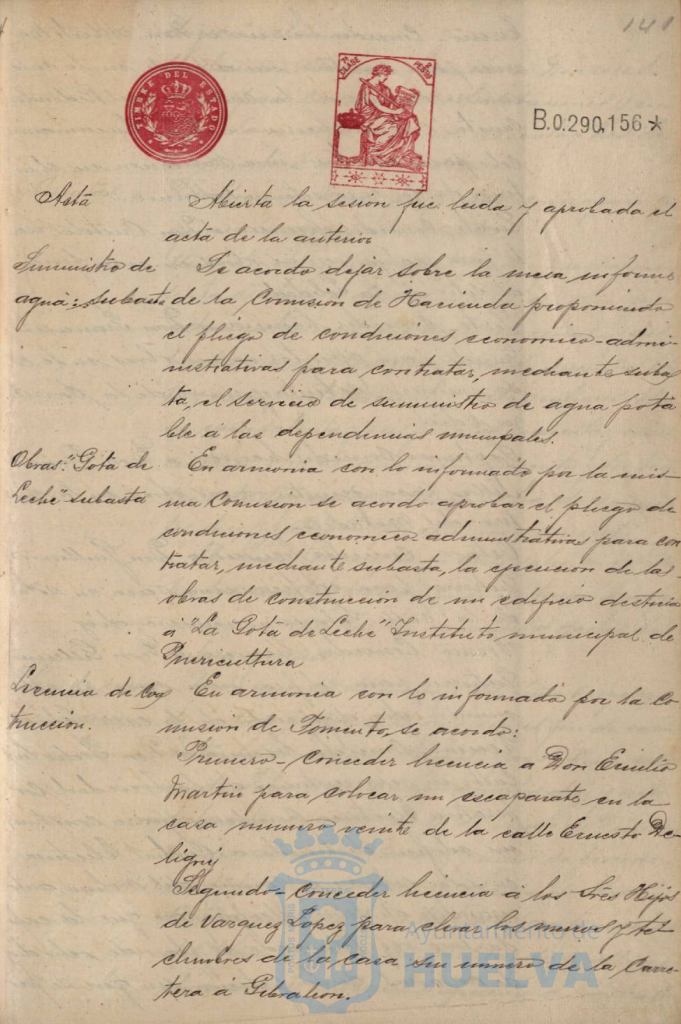 141
TIMBRE DEL ESTADO
CLASE
PESOS
B.0.290,156*
Acta
Abierta la sesión fue leida y aprobada el
acta de la anterior
Suministro de
agua: subasta
Se acordo dejar sobre la mesa informe
de la Comisión de Hacienda proponiendo
el pliego de condiciones economico-admi-
nistrativas para contratar, mediante suba
ta, el servicio de suministro de agua pota
ble á las dependencias municipales.
Obras: "Gota de
Leche" subasta
En armonia con lo informado por la mis-
ma Comisión se acordo aprobar el pliego de
condiciones economico administrativas para con
tratar, mediante subasta, la ejecución de las
obras de construcción de un edificio destina
á "La Gota de Leche" Instituto municipal de
Puericultura
Licencia de Cons
trucción.
En armonia con lo informado por la Co
misión de Fomento, se acordo:
Primero- conceder licencia a Don Emilio
Martin para colocar un escaparate en la
casa numero veinte de la calle Ernesto De-
ligny
Segundo- conceder licencia á los Sres Hijos
de Vazquez Lopez para elevar los muros y te-
chumbres de la casa sin numero de la Carre-
tera á Gibraleon.
Ayuntamiento de
HUELVA